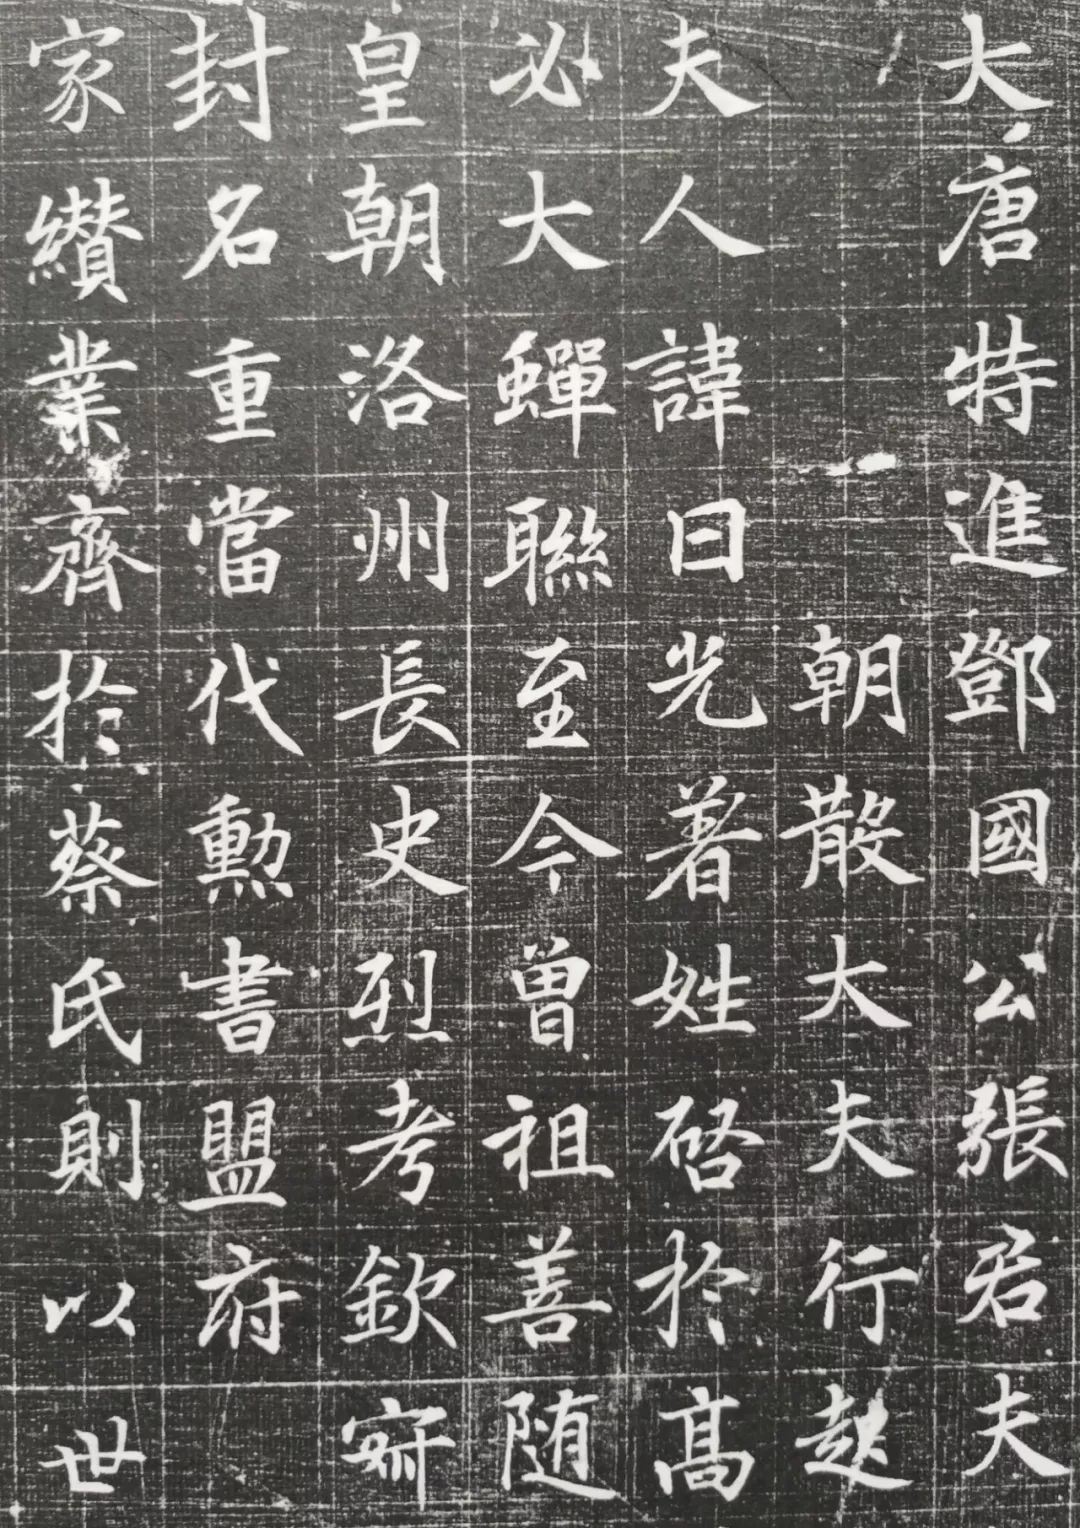 大唐特進鄧國公張君夫
朝散大夫行趙
夫人諱曰光著姓啓於高
必大蟬聯至今曾祖善随
皇朝洛州長史烈考欽
封名重當代勳書盟府
家纘業齊於蔡氏則以世